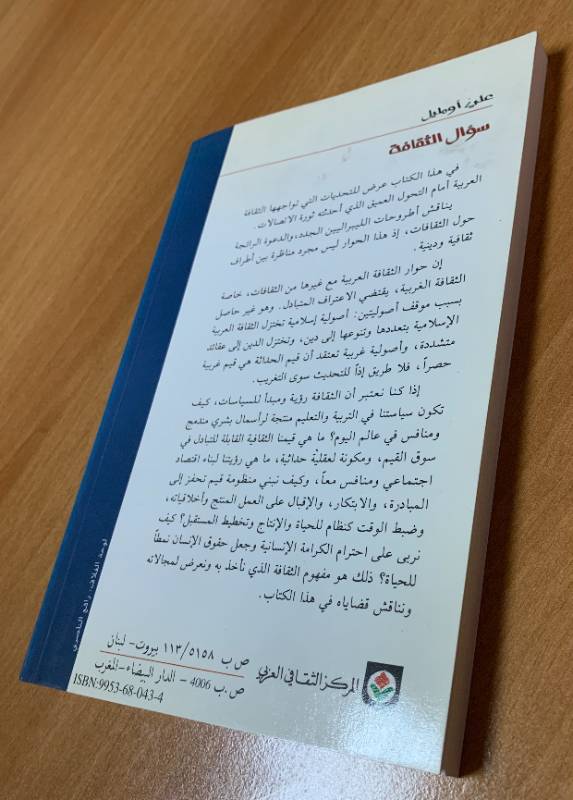 علي أومليل
سؤال الثقافة
في هذا الكتاب عرض للتحديات التي تواجهها الثقافة
العربية أمام التحول العميق الذي أحدثته ثورة الاتصالات.
يناقش أطروحات الليبراليين الجدد، والدعوة الرائجة
حول الثقافات، إذ هذا الحوار ليس مجرد مناظرة بين أطراف
ثقافية ودينية.
إن حوار الثقافة العربية مع غيرها من الثقافات، خاصة
الثقافة الغربية، يقتضي الاعتراف المتبادل. وهو غير حاصل
بسبب موقف أصوليتين: أصولية إسلامية تختزل الثقافة العربية
الإسلامية بتعددها وتنوعها إلى دين، وتختزل الدين إلى عقائد
متشددة، وأصولية غربية تعتقد أن قيم الحداثة هي قيم غربية
حصراً، فلا طريق إذاً للتحديث سوى التغريب.
إذا كنا نعتبر أن الثقافة رؤية ومبدأ للسياسات، كيف
تكون سياستنا في التربية والتعليم منتجة لرأسمال بشري مندمج
ومنافس في عالم اليوم؟ ما هي قيمنا الثقافية القابلة للتبادل في
سوق القيم، ومكونة لعقليّة حداثية، ما هي رؤيتنا لبناء اقتصاد
اجتماعي ومنافس معاً، وكيف نبني منظومة قيم تحفز إلى
المبادرة، والابتكار، والإقبال على العمل المنتج وأخلاقياته،
وضبط الوقت كنظام للحياة والإنتاج وتخطيط المستقبل؟ كيف
نربى على احترام الكرامة الإنسانية وجعل حقوق الإنسان نمطاً
للحياة؟ ذلك هو مفهوم الثقافة الذي نأخذ به ونعرض لمجالاته
ونناقش قضاياه في هذا الكتاب.
لوحة الغلاف: رافع الناصري
المركز الثقافي العربي
ص ب ١١٣/٥١٥٨ بيروت - لبنان
ص.ب 4006 - الدار البيضاء - المغرب
ISBN:9953-68-043-4